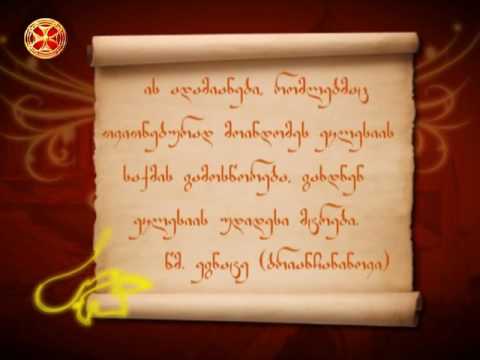 ის ადამიანები, რომლებმაც
თვითნებურად მოინდომეს ეკლესიის
საქმის გამოსწორება, გახდნენ
ეკლესიის უდიდესი მტრები.
წმ. ეგნატე (ბრიანჩანინოვი)